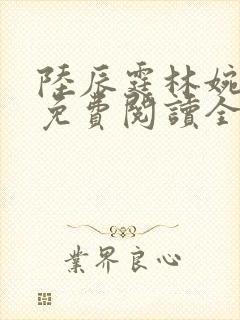 陸辰霆林婉
免費閱讀全
業界良心